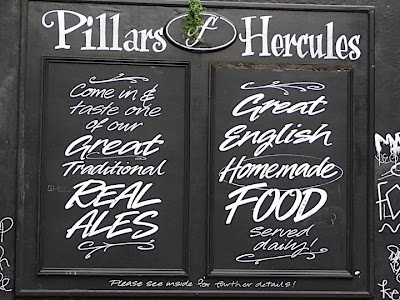 Pillars of Hercules
Come in &
taste one
of our
Great
Traditional
REAL
ALES
Great
English
Homemade
FOOD
served
daily!
Please see inside for further details!